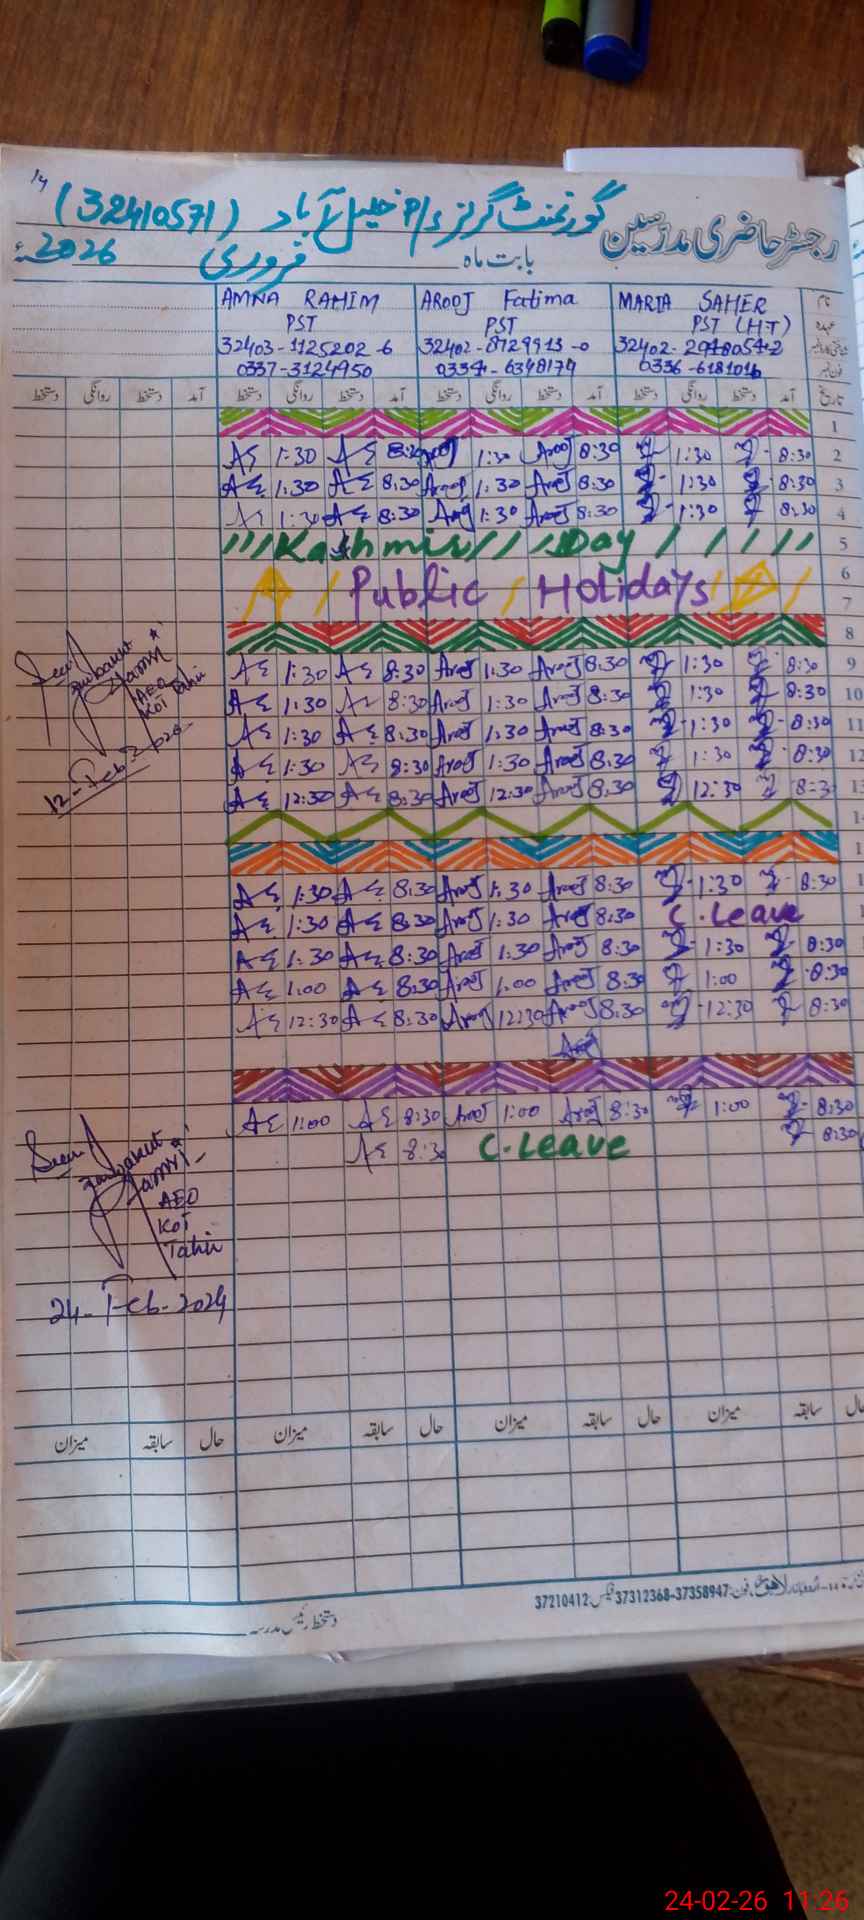 14
رجسٹر حاضری مدرسین گورنمنٹ گرلز P/S خلیل آباد (32410571)
بابت ماہ فروری 2026ء
نام MARIA SAHER AROOJ Fatima AMNA RAHIM
عہدہ PST (H.T) PST PST
32402-8729913-0 32403-1125202-6
فون نمبر 0336-6181016 0337-3124950
تاریخ آمد دستخط روانگی دستخط آمد دستخط روانگی دستخط آمد دستخط روانگی دستخط آمد دستخط روانگی دستخط
1
2 8:30 1:30 8:30 Arooj 1:30 Arooj 8:30 1:30
3 8:30 1:30 8:30 Arooj 1:30 Arooj 8:30 1:30
4 8:30 1:30 8:30 Arooj 1:30 Arooj 8:30 1:30
5 Kashmir Day
6
Public Holidays
7
8
9 8:30 1:30 8:30 Arooj 1:30 Arooj 8:30 1:30
10 8:30 1:30 8:30 Arooj 1:30 Arooj 8:30 1:30
11 8:30 1:30 8:30 Arooj 1:30 Arooj 8:30 1:30
12 8:30 1:30 8:30 Arooj 1:30 Arooj 8:30 1:30
13 8:3 12:30 8:30 Arooj 12:30 Arooj 8:30 12:30
14
1
1 8:30 1:30 8:30 Arooj 1:30 Arooj 8:30 1:30
1 C. Leave 8:30 Arooj 1:30 Arooj 8:30 1:30
8:30 1:30 8:30 Arooj 1:30 Arooj 8:30 1:30
8:30 1:00 8:30 Arooj 1:00 Arooj 8:30 1:00
8:30 12:30 8:30 Arooj 12:30 Arooj 8:30 12:30
8:30 1:00 8:30 Arooj 1:00 Arooj 8:30 1:00
8:30 C. Leave 8:3
Seen
AEO
Kot Tahir
12-Feb-2
Seen
AEO
Kot
Tahir
24-Feb-2024
حال سابقہ میزان حال سابقہ میزان حال سابقہ میزان حال سابقہ میزان
لاہور فون: 37312368-37358947 فیکس: 37210412
دستخط رئیس مدرسہ
24-02-26 11:26